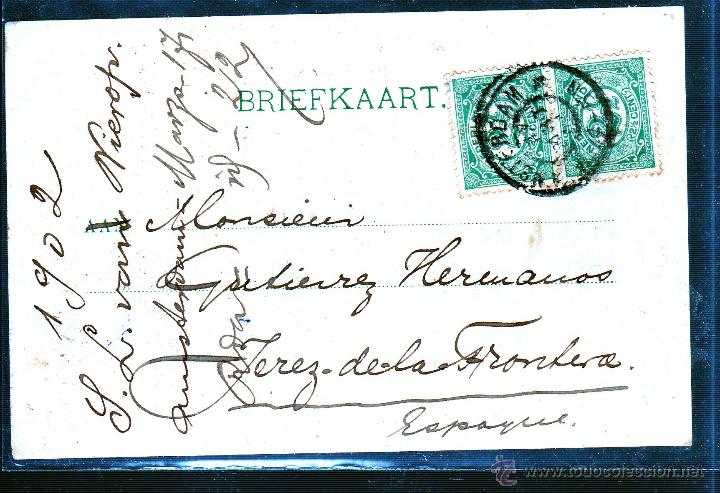 BRIEFKAART.
Monsieur
Gutierrez Hermanos
Jerez-de-la-Frontera.
Espagne.
1902
S. L. van Nierop.
Amsterdam - Marzo - 17
22
2½ CENT
todocoleccion
www.todocoleccion.net